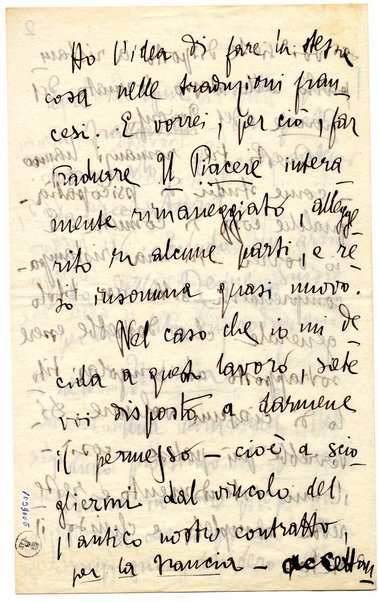 Ho l'idea di fare la stessa
cosa nelle traduzioni fran
cesi. E vorrei, per ciò, far
tradurre Il Piacere intera
mente rimaneggiato, allegge
rito in alcune parti, e re
so insomma quasi nuovo.
Nel caso che io mi de
cida a questo lavoro, siete
voi disposto a darmene
il permesso – cioè a scio
gliermi dal vincolo del
l'antico nostro contratto,
per la Francia – accettan